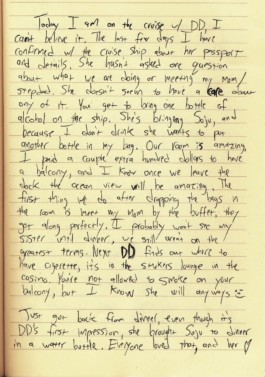 Today I am on the cruise w/ DD. I
can't believe it. The last few days I have
confirmed w/ the cruise ship about her passport
and details. She hasn't asked one question
about what we are doing or meeting my Mom/
stepdad. She doesn't seem to have a care about
any of it. You get to bring one bottle of
alcohol on the ship. She's bringing Soju, and
because I don't drink she wants to put
another bottle in my bag. Our room is amazing,
I paid a couple extra hundred dollars to have
a balcony, and I know once we leave the
dock the ocean view will be amazing. The
first thing we do after dropping the bags in
the room is meet my Mom by the buffet, they
got along perfectly. I probably wont see my
sister until dinner, we still arent on the
greatest terms. Next DD finds out where to
have cigarette, it's in the smokers lounge in the
casino. You're not allowed to smoke on your
balcony, but I know she will anyways
Just got back from dinner, even though it's
DD's first impression, she brought Soju to dinner
in a water bottle. Everyone loved that, and her